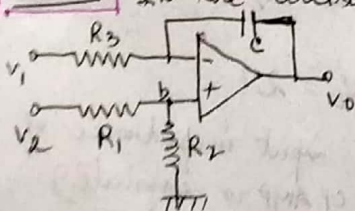 R3
C
V1
-
V0
b
+
V2
R1
R2